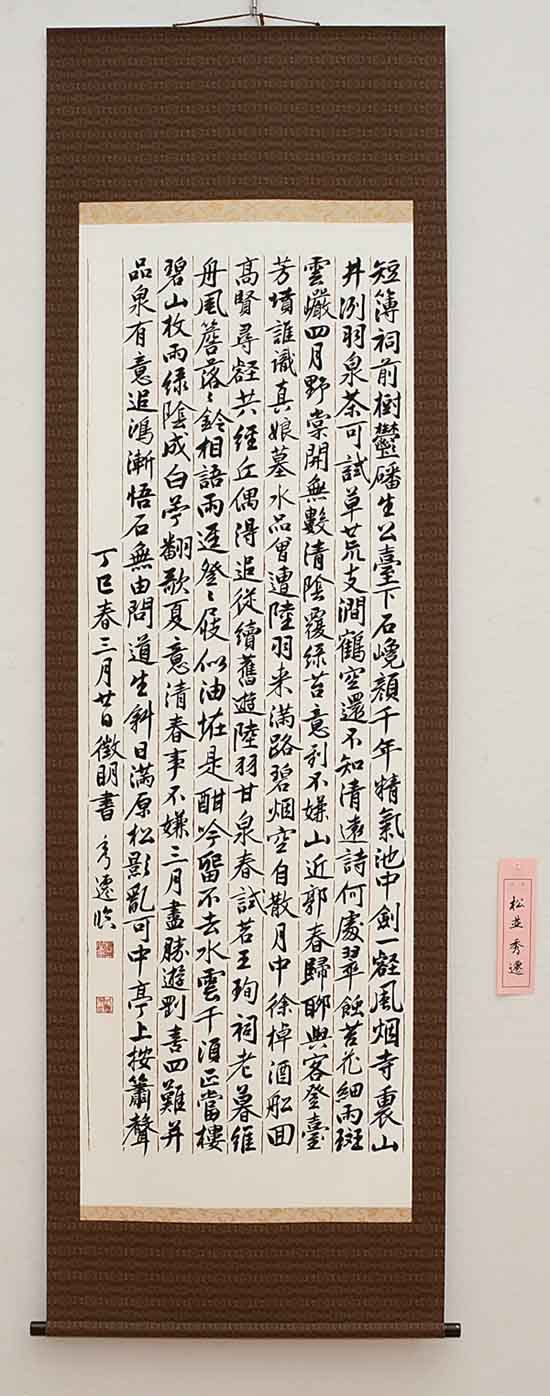 短簿祠前樹鬱磻生公臺下石巉顔千年精氣池中劍一壑風烟寺裏山
井冽羽泉茶可試草荒支澗鶴空還不知清遠詩何處翠蝕苔花細雨斑
雲巖四月野棠開無數清陰覆緑苔意到不嫌山近郭春歸聊與客登臺
芳墳誰識真娘墓水品曾遭陸羽来滿路碧烟空自散月中徐棹酒船回
高賢尋壑共經丘偶得追從續舊遊陸羽甘泉春試茗王珣祠老暮維
舟風簷落〻鈴相語雨逕登〻屐似油是酣吟留不去水雲千頃正當樓
碧山枚雨緑陰成白苧翻歌夏意清春事不嫌三月盡勝遊剛喜四難并
品泉有意追鴻漸悟石無由問道生斜日滿原松影亂可中亭上按簫聲
丁巳春三月廿日徵明書 秀遷臨
松並秀遷